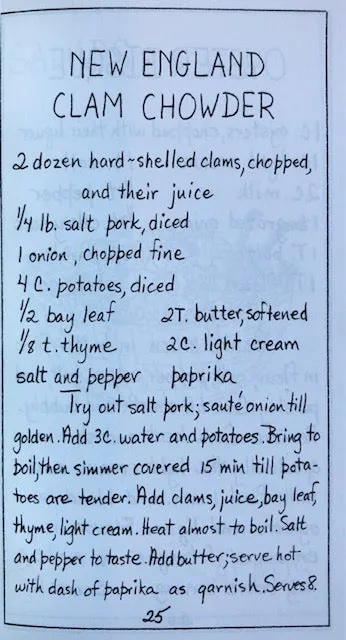 NEW ENGLAND
CLAM CHOWDER
2 dozen hard-shelled clams, chopped,
and their juice
1/4 lb. salt pork, diced
1 onion, chopped fine
4 C. potatoes, diced
1/2 bay leaf 2T. butter, softened
1/8 t. thyme 2C. light cream
salt and pepper paprika
Try out salt pork; sauté onion till
golden. Add 3C. water and potatoes. Bring to
boil, then simmer covered 15 min till pota-
toes are tender. Add clams, juice, bay leaf,
thyme, light cream. Heat almost to boil. Salt
and pepper to taste. Add butter; serve hot
with dash of paprika as garnish. Serves 8.
25